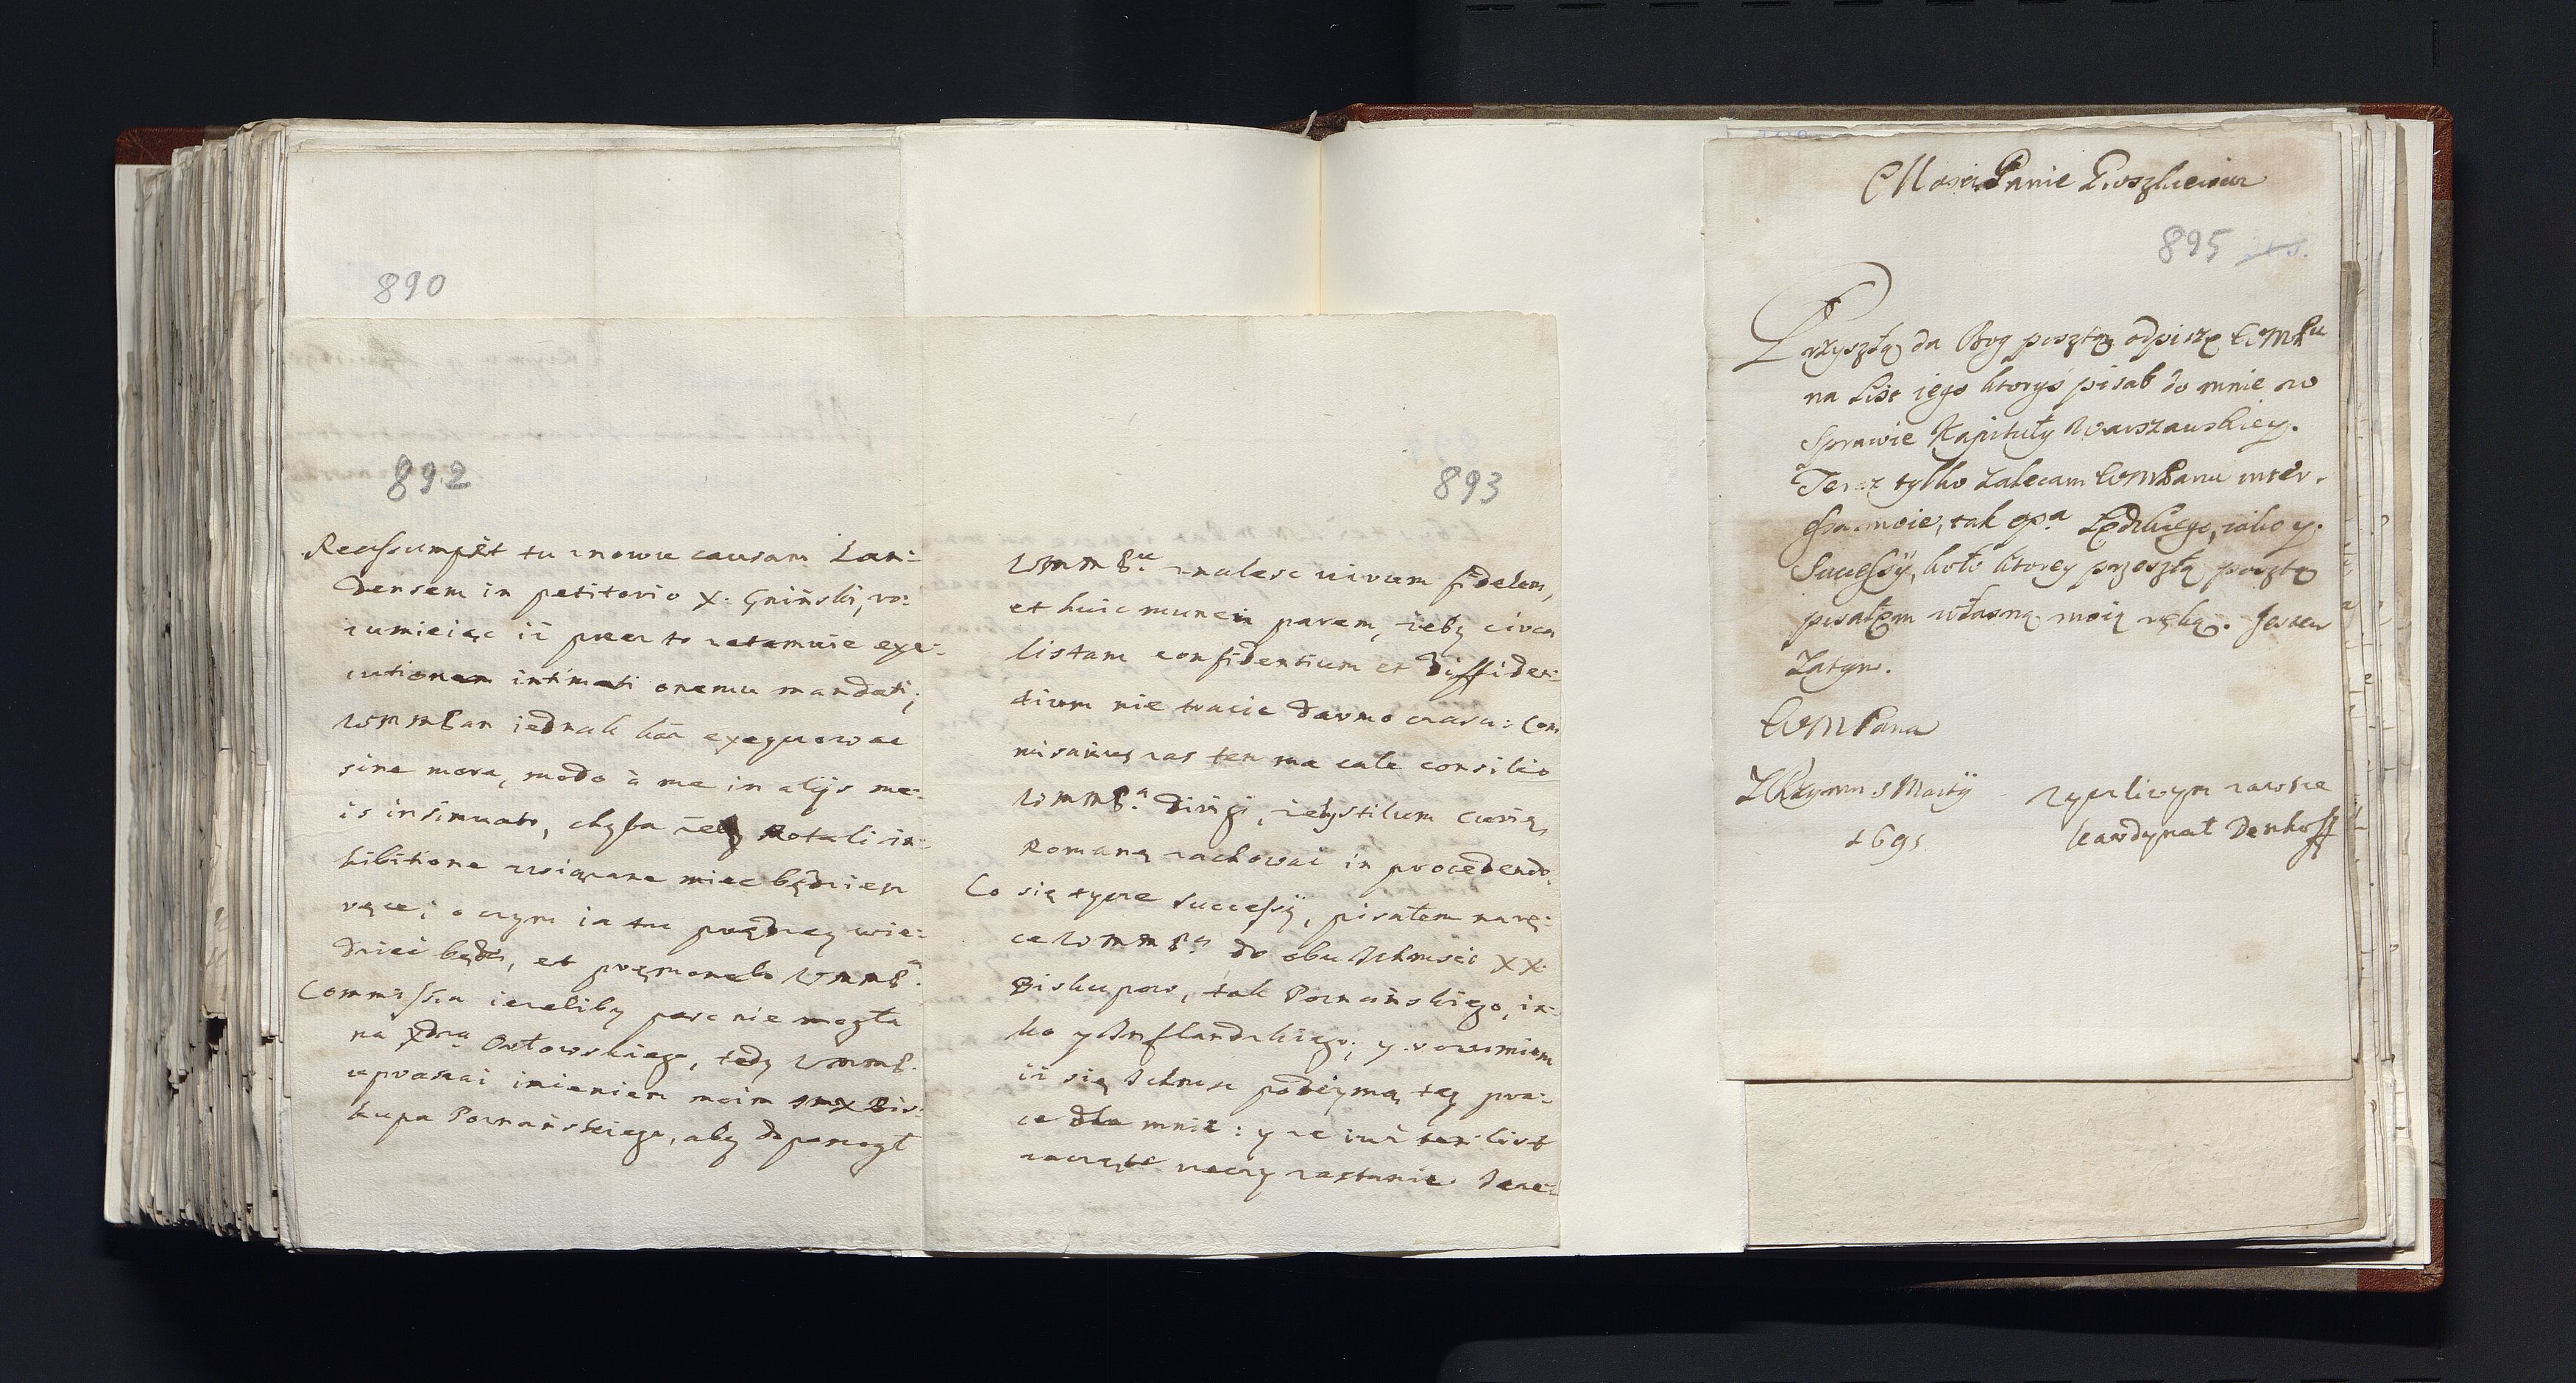 890
892
Reassumpsit tu znowu causam Lan-
densem in petitorio X. Gniński, ro-
zumieiąc iż przez to zatamuie exe-
cutionem intimati onemu mandati;
WMMPan iednak każ exequowac
sine mora, modo à me in alijs me-
is insinuato, chyba żeby Rotali in-
hibitione związane miec będziesz
ręce; o czym ia tu prędzey wie-
dziec będę, et pręmonebo WMMPa.
Commissia ieżeliby pasc nie mogła
na Xdza Osłowskiego, tedy WMMP.
upraszai imieniem moim JMX Bis-
kupa Poznańskiego, aby dopomogł
893
WMMPu znalesc virum fidelem,
et huic muneri parem, żeby circa
listam confidentium et diffiden-
tium nie tracic darmo czasu: Com
misariusz zas ten ma cale consilio
WMMPa dirigi, żeby stilum Curię
Romanę zachowac in procedendo.
Co się tycze Successÿ, pisałem na rę-
ce WMMPa do obu Ichmsci XX.
Biskupow, tak Poznańskiego, ia-
ko y Inflandzkiego; y rozumiem
iż się Ichmsc podeymą tey pra-
ce dla mnie: y że iuż ten list
zaczęte rzeczy zastanie. Jeże-
Mosci Panie Proszkiewicz
895
Przyszłą da Bog posztą odpiszę WMPu
na List iego ktorys pisał do mnie w
Sprawie Kapituły Warszawskiey.
Teraz tylko zalecam WMPanu inter-
essa moie, tak opa Lędzkiego, iako y
Successÿ, koło ktorey przeszłą posztą
pisałem własną moią ręką. Jestem
Zatym.
WMPana
Z Rzymu 5 Martÿ
1691
zyczliwym zawsze
Kardynał Denhoff